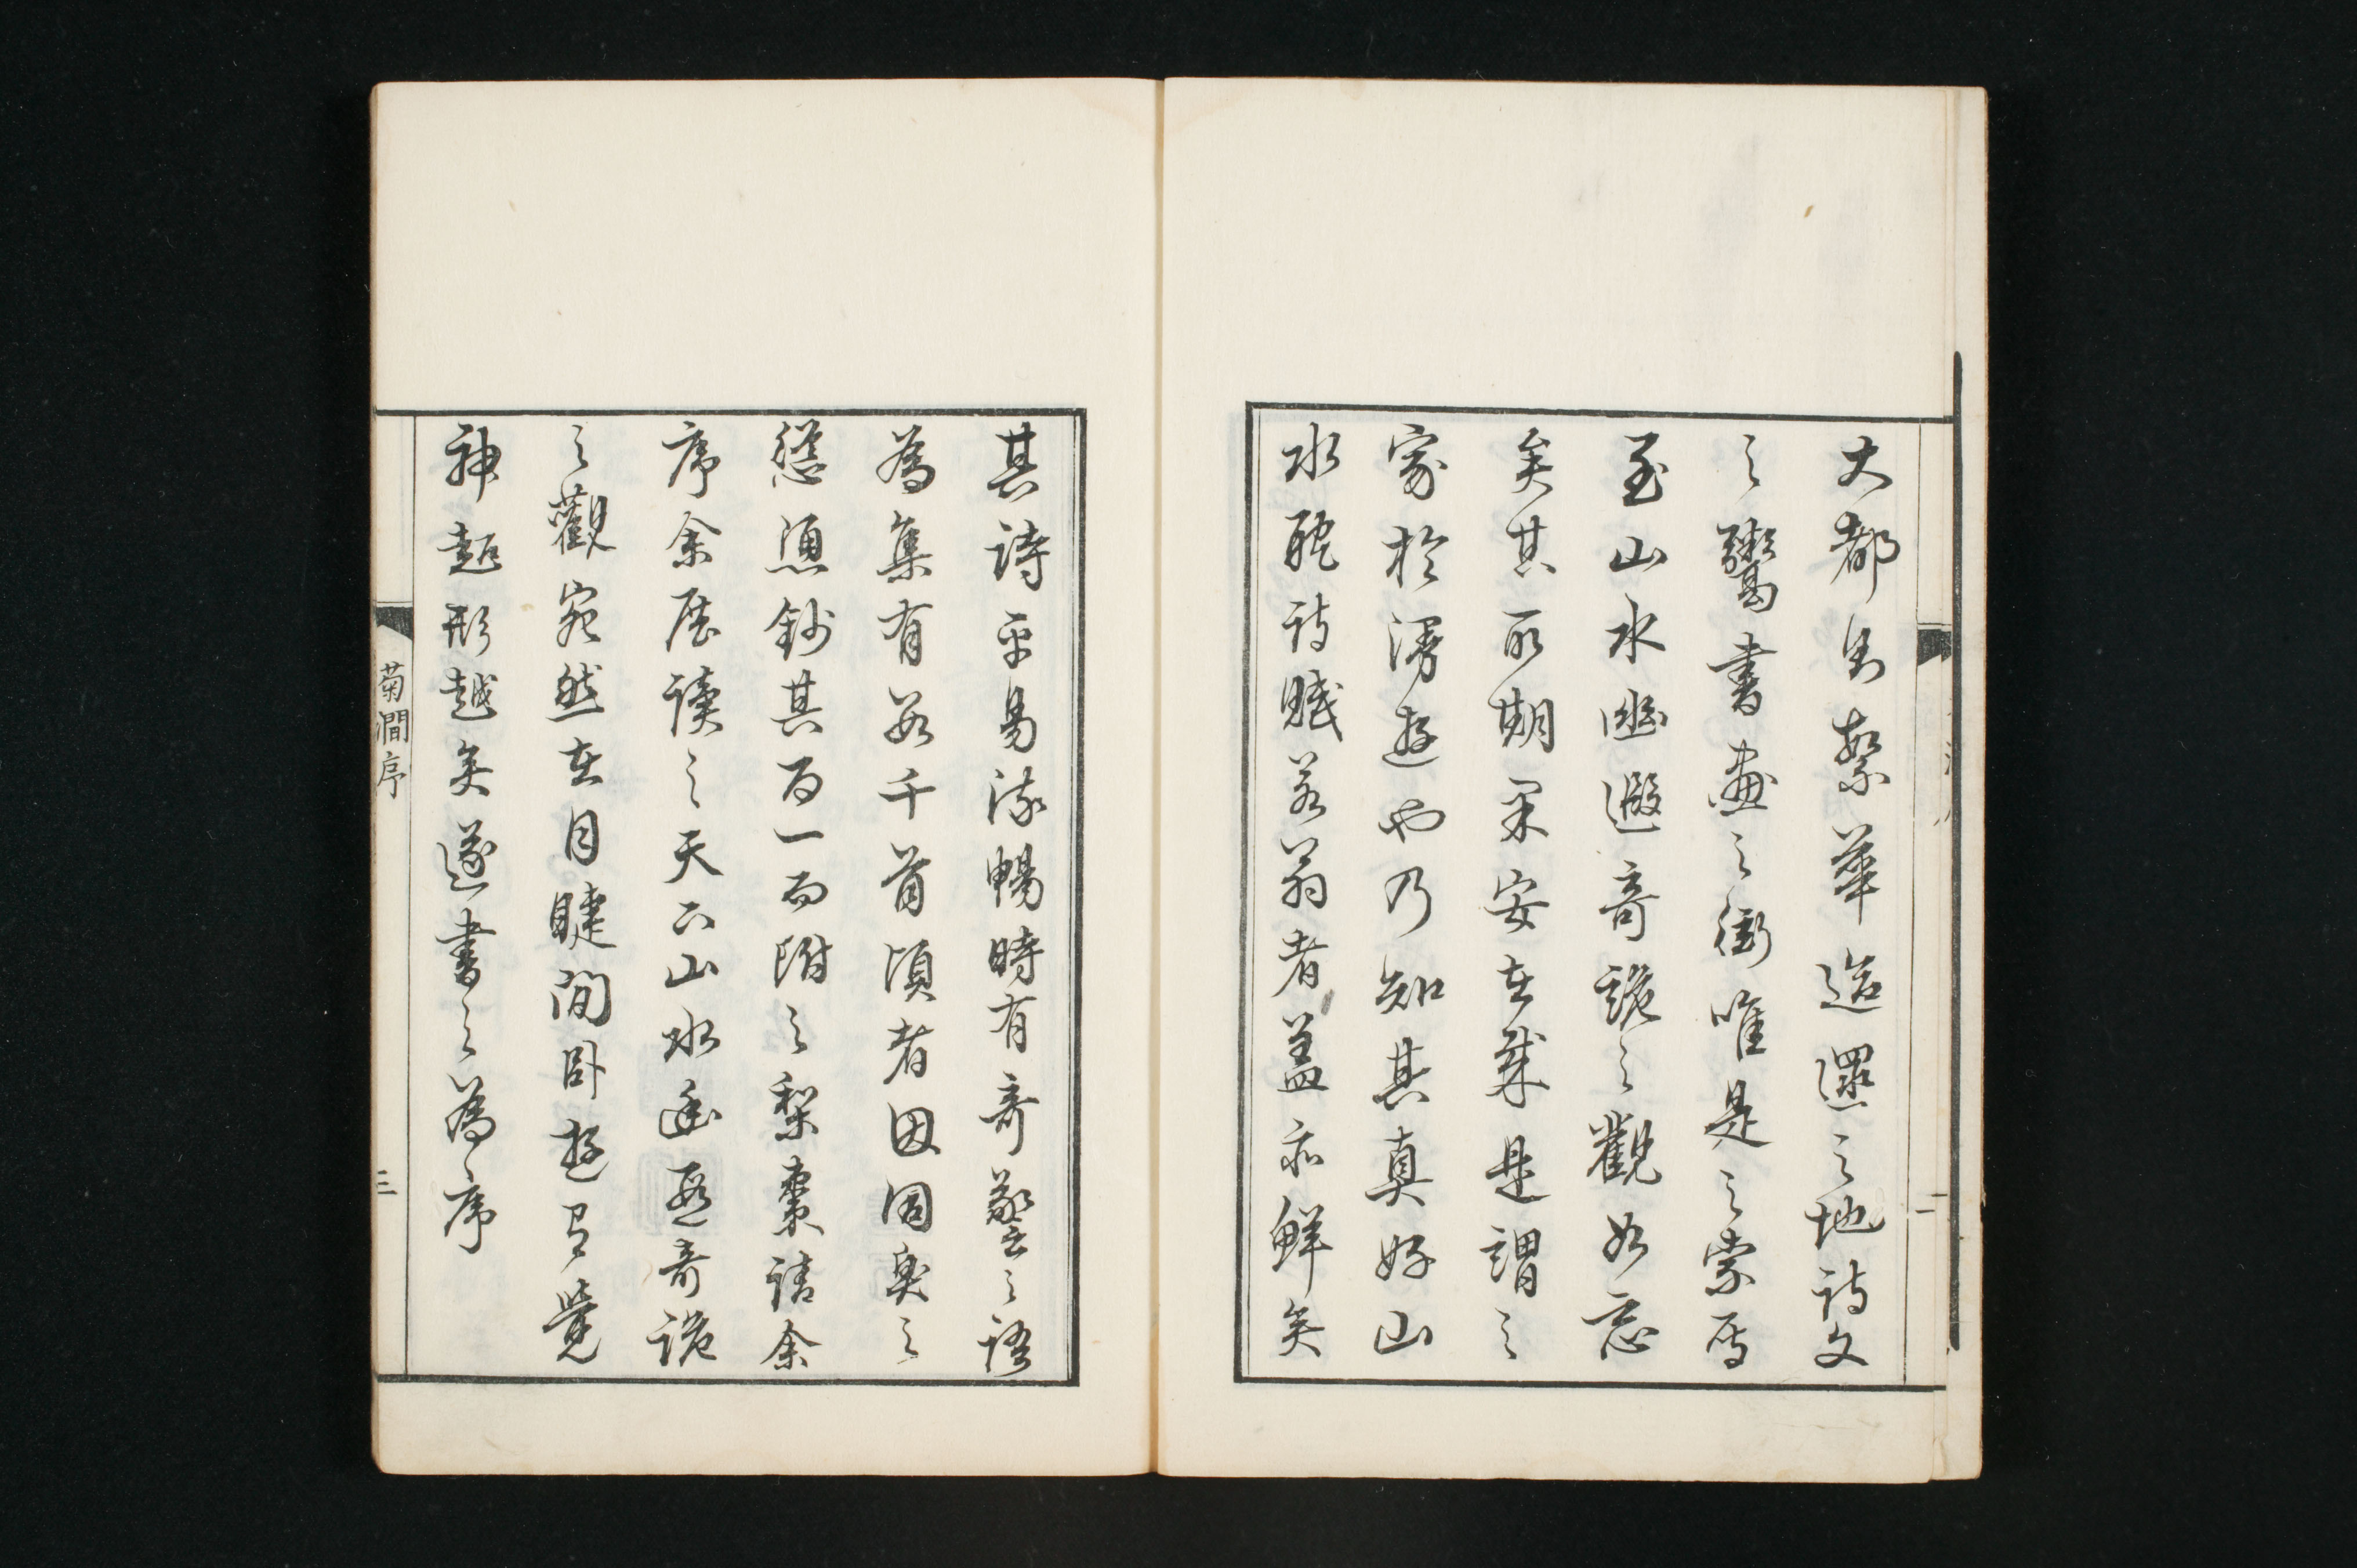 大都甼繁華造還之地詩文
之鬻書畫之衒唯是之索焉
至山水幽遐奇詭之觀如忘
矣其所期果安在哉是謂之
家於漫遊也乃知其真好山
水耽詩賦若翁者蓋亦鮮矣
其詩平易流暢時有奇警之語
為集有若千首頃者因同臭之
慫慂鈔其百一而附之梨棗請余
序余展讀之天下山水幽遐奇詭
之觀宛然在目睫間臥遊有覺
神超形越矣遂書之為序
菊澗序
三
二